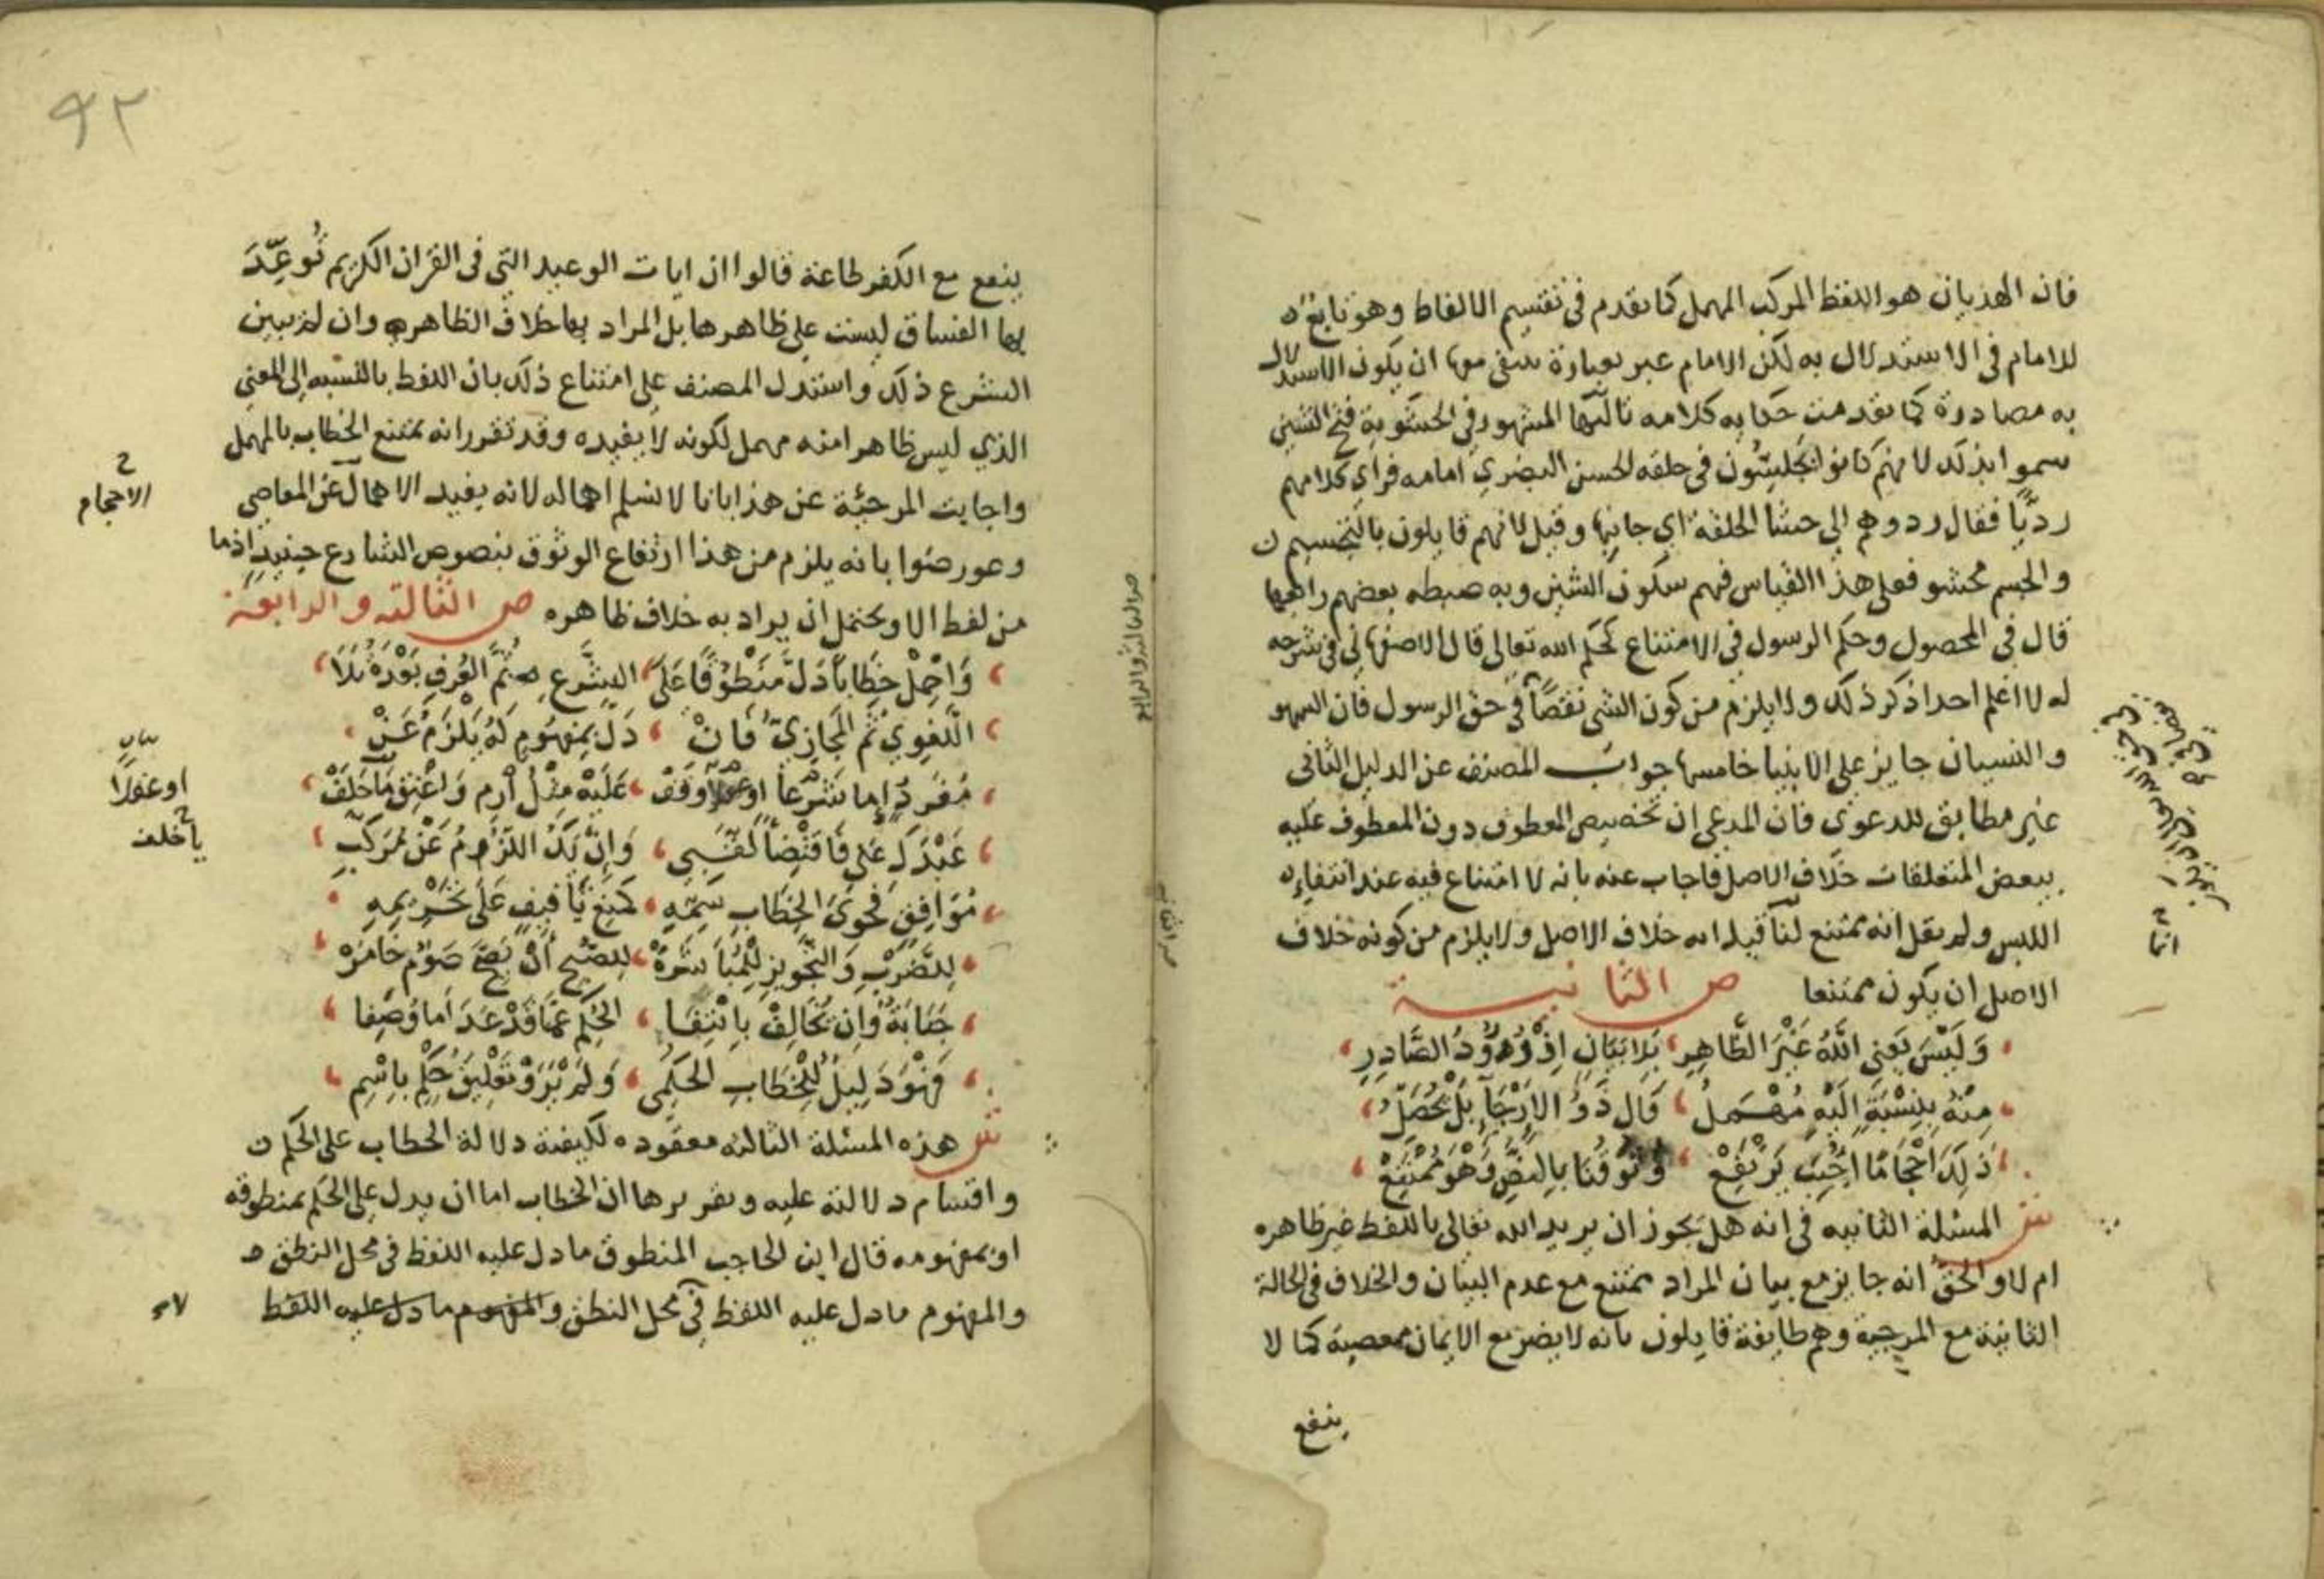 فان الهذيان هو اللفظ المركب المهمل كما تقدم في تقسيم الالفاظ وهو تابع
للامام في الاستدلال به لكن الامام عبر بعبارة معها ان يكون الاستدلال
به مصادرة كما تقدمت حكاية كلامه ثالثها المشهور في الحشوية فتح الشين
سموا بذلك لانهم كانوا يجلسون في حلقة الحسن البصري امامه فراي كلامهم
رديا فقال ردوهم الي حشا الحلقة اي جانبها وقيل لانهم قايلون بالتجسيم
والجسم محشو فعلي هذا القياس فهم سكون الشين وبه ضبطه بعضهم رابعها
قال في المحصول وحكم الرسول في الامتناع كحكم الله تعالي قال الاصفهاني في شرحه
له لا اعلم احدا ذكر ذلك ولا يلزم من كون الشي نقصا في حق الرسول فان السهو
والنسيان جايز علي الانبيا خامسها جواب المصنف عن الدليل الثاني
غير مطابق للدعوي فان المدعي ان تخصيص المعطوف دون المعطوف عليه
ببعض المتعلقات خلاف الاصل فاجاب عنه بانه لا امتناع فيه عند انتفاء
اللبس ولم يقل انه ممتنع لنا قيد انه خلاف الاصل ولا يلزم من كونه خلاف
الاصل ان يكون ممتنعا ص الثانية
وَلَيْسَ يَعني اللهُ غَيْرَ الظَّاهِرِ بَلا بَيَانٍ اِذْ وُرُوْدُ الصَّادِرِ
مِنْهُ بِنِسْبَةٍ اِلَيْهِ مُهْمَلُ وَقَالَ ذَوُ الاِرْجَآءِ بَلْ يُحَصِّلُ
ذَلِكَ اَحْجَامًا اُجِيْبَ يَرْتَفِعْ وُثُوْقُنَا بِالنَّصِّ وَهْوَ مُمْتَنِعْ
ش المسئلة الثانيه في انه هل يجوز ان يريد الله تعالي باللفظ غير ظاهره
ام لا والحق انه جايز مع بيان المراد ممتنع مع عدم البيان والخلاف في الحالة
الثانية مع المرجية وهم طايفة قايلون بانه لا يضر مع الايمان معصية كما لا
ينفع
٩٢
ينفع مع الكفر طاعة قالوا ان ايات الوعيد التي في القران الكريم تُوُعِّدَ
بها الفساق ليست علي ظاهرها بل المراد بها خلاف الظاهر وان لم يبين
الشرع ذلك واستدل المصنف علي امتناع ذلك بان اللفظ بالنسبه الي المعني
الذي ليس ظاهرا منه مهمل لكونه لا يفيده وقد تقرر انه يمتنع الخطاب بالمهمل
واجابت المرجئة عن هذا بانا لا نسلم اهماله لانه يفيد الاهمال عن المعاصي
الاحجام
وعورضوا بانه يلزم من هذا ارتفاع الوثوق بنصوص الشارع حينيذ اذ ما
من لفظ الا ويحتمل ان يراد به خلاف ظاهره ص الثالثة والرابعة
وَاحْمِلْ خِطَاباً دَلَّ مَنْطُوْقًا عَلَى الشَّرعِ ثُمَّ العُرْفِ بَعْدَهُ تَلَا
اللُّغَوِيُّ ثُمَّ المَجَازِيُّ فَاِنْ دَلَّ بِمَفْهُومٍ لَهُ يَلْزَمُ عَنْ
مُفْرَدٍ اِما شَرْعًا او وَقَفْ عَلَيْهِ مِثْلُ اُرْمِ وَاعْتِقْ مَا خَلَفْ
او عقلا
يا خلف
عَبْدَكَ عَنّي فَاقْتِضَاً لُقِّبِي وَاِنْ يَكُ اللُّزُوْمُ عَنْ مُرَكَّبِ
مُوَافِقٍ فَحْوَى الخِطَابِ سَمِّهِ كَمَنْعِ تَأْفِيْفٍ عَلَى تَحْرِيْمِهِ
لِلضَّرْبِ وَالتَّجْوِيْزِ لِلْمُبَاشَرَهْ لِلصُّبْحِ اَنْ يَصِحَّ صَوْمٌ خَامَرَهْ
جَنَابَةٌ وَاِنْ يُخَالِفْ بِانْتِفَا الحُكْمِ عَمَّا قَدْ عَدَا مَا وُصِفَا
فَهْوَ دَلِيْلُ الْخِطَابِ الحُكْمِي وَلَمْ يَرَوْ تَعْلِيْقَ حُكْمٍ بِاسْمِ
ش هذه المسئلة الثالثة معقوده لكيفية دلالة الخطاب علي الحكم
واقسام دلالته عليه وتقريرها ان الخطاب اما ان يدل علي الحكم بمنطوقه
او بمفهومه قال ابن الحاجب المنطوق ما دل عليه اللفظ في محل النطق
والمفهوم ما دل عليه اللفظ في محل النطق والمفهوم ما دل عليه اللفظ
لا